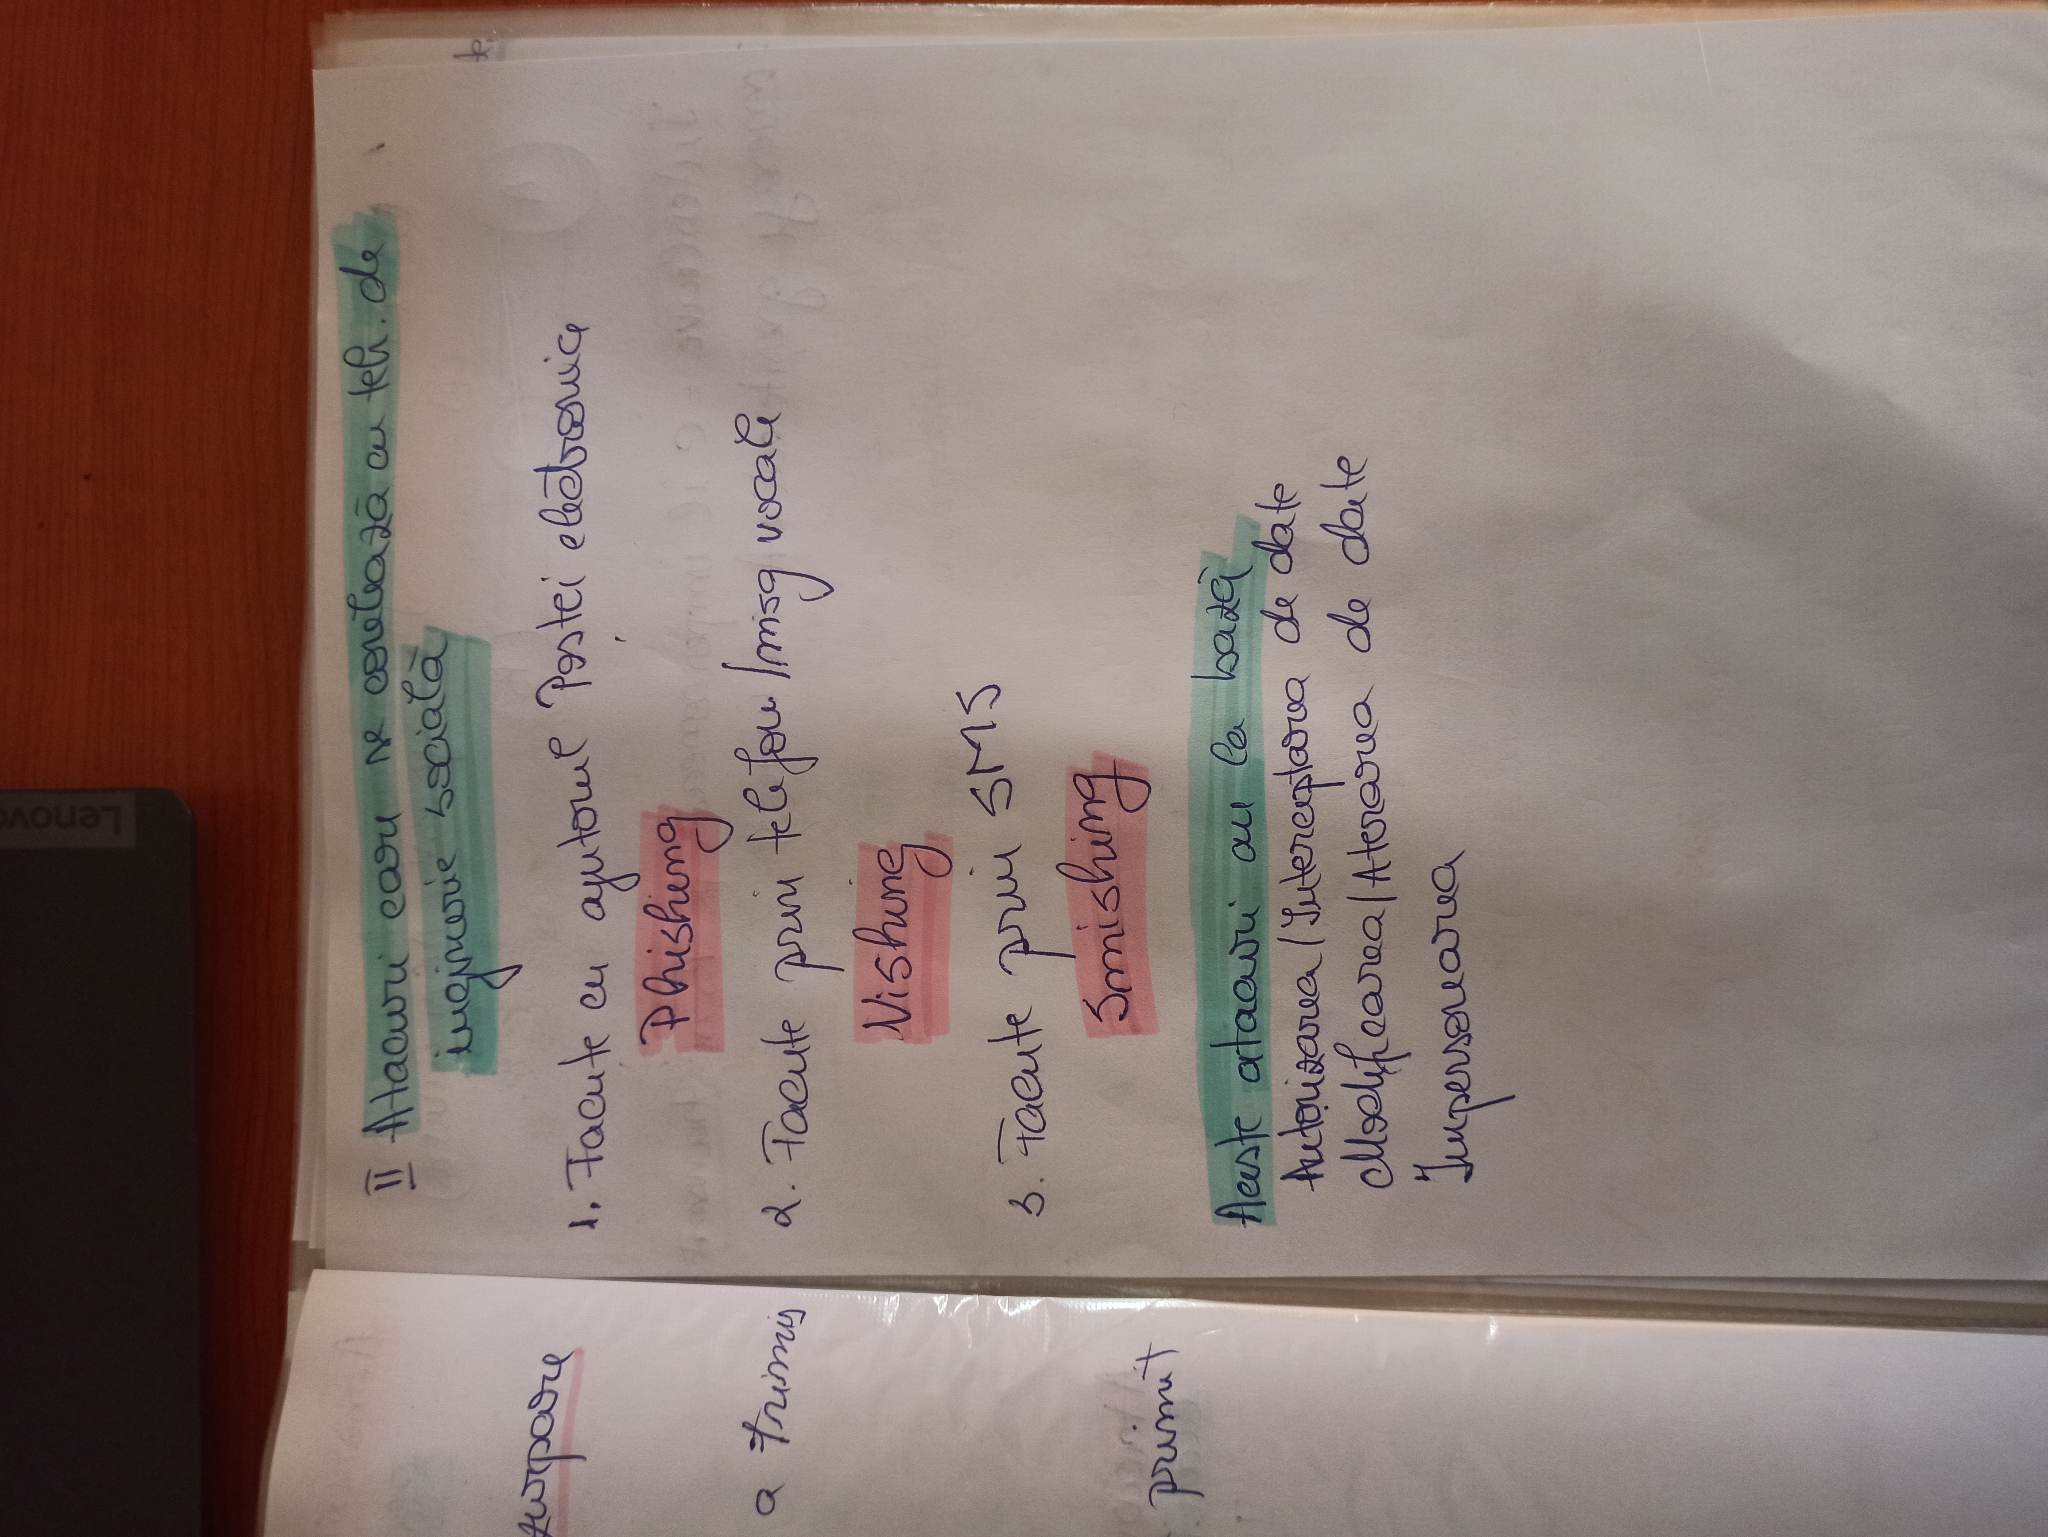 II Atacuri care se corelează cu teh. de
inginerie socială
1. Facute cu ajutorul Postei electronice
Phishing
2. Facute prin telefon/msg vocale
Vishing
3. Facute prin SMS
Smishing
Aceste atacuri au la bază
Autorizarea/Interceptarea de date
Modificarea/Alterarea de date
Impersonarea
a trimis
primit
Lenovo